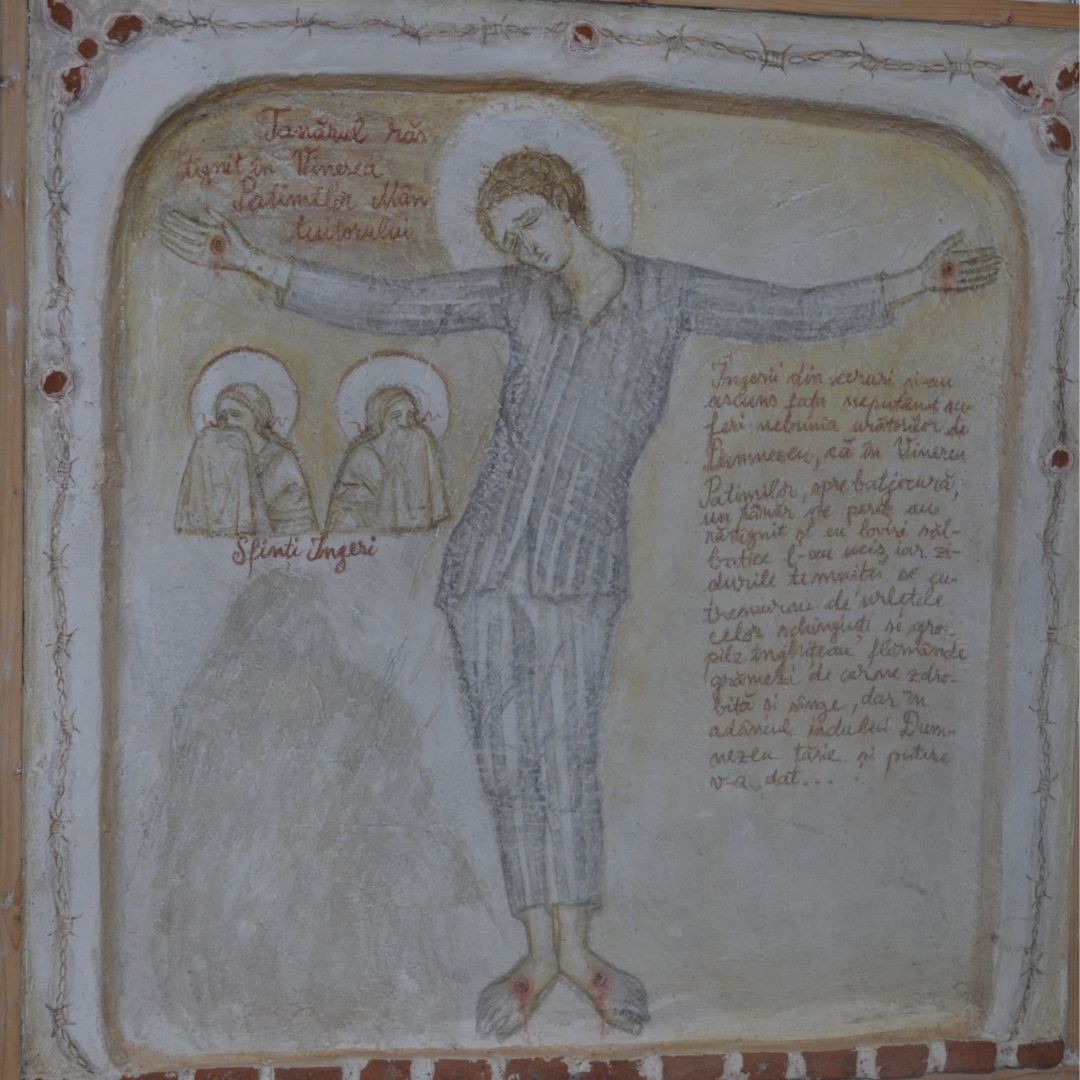 Tanărul răs
tignit în Vinerea
Patimilor Mân
tuitorului
Sfinți Îngeri
Îngerii din ceruri și-au
ascuns fața neputând su-
feri nebunia urâtorilor de
Dumnezeu, că în Vinerea
Patimilor, spre batjocură,
un tânăr pe perete au
răstignit și cu loviri săl-
batice l-au ucis, iar zi-
durile temniței se cu-
tremurau de urletele
celor schingiuți și gro-
pile înghițeau flămânde
grămezi de carne zdro-
bită și sânge, dar în
adâncul iadului Dum-
nezeu tărie și putere
v-a dat...